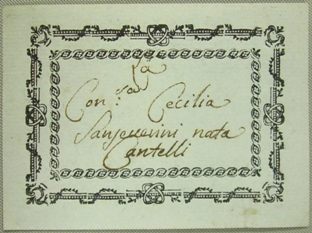 La
Con.sa Cecilia
Sanseverini nata
Cantelli